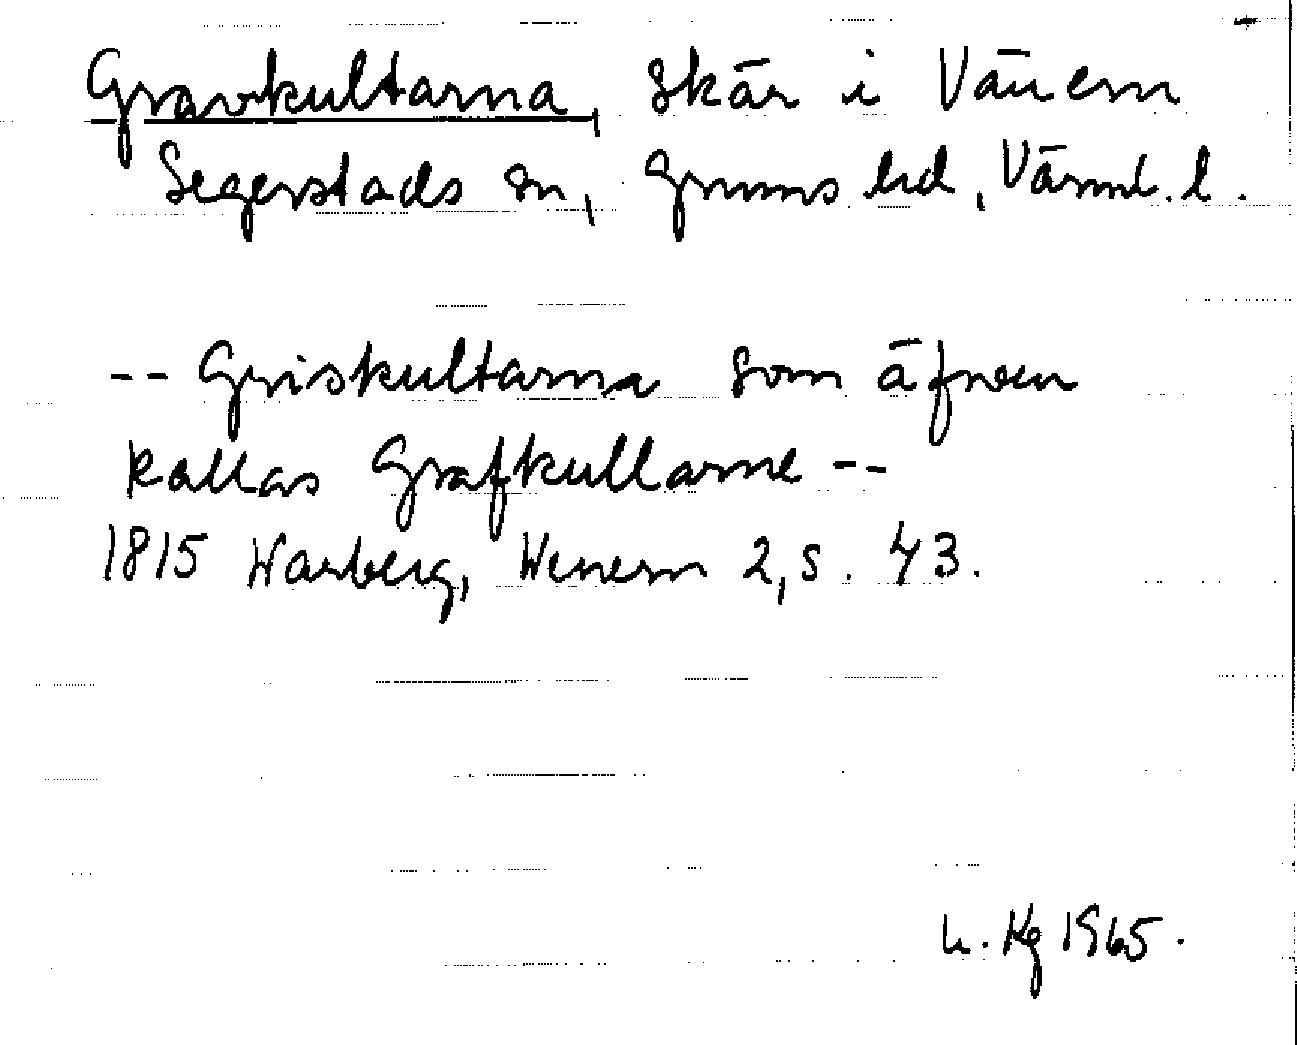 Gravkultarna, skär i Vänern
Segerstads sn, Grums hd, Värml. l.
-- Griskultarna som äfven
kallas Grafkullarne --
1815 Warberg, Wenern 2, s. 43.
L. Kg 1965.